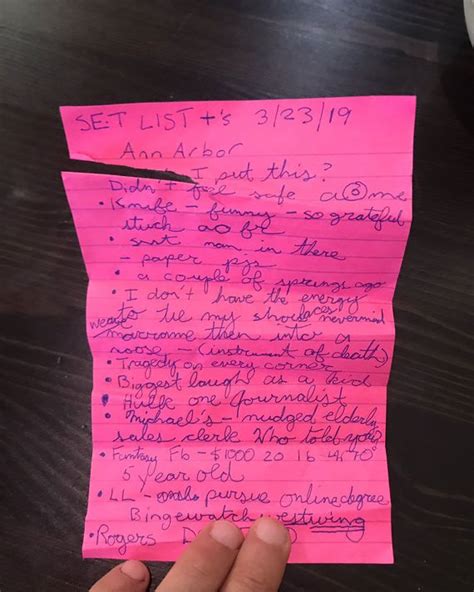 SET LIST +'s 3/23/19
Ann Arbor
I put this?
Didn't feel safe a me
• Knife - funny - so grateful
stuck
• sent man in there
- paper pjs
• a couple of springs ago
• I don't have the energy
to tie my shoelaces nevermind
weave macrame them into a
noose - (instrument of death)
• Tragedy on every corner
• Biggest laugh as a kid
• one Journalist
• Michael's - nudged elderly
sales clerk Who told you?
• Funtasy FB - $1000 20 16
5 year old
• LL - pursue online degree
Binge watch westwing
• Rogers D